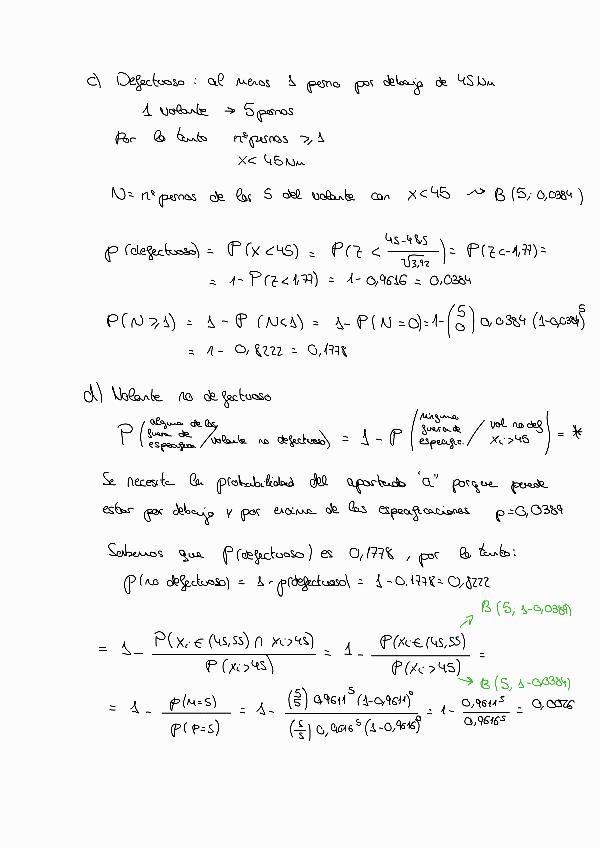 c) Defectuoso: al menos 1 perno por debajo de 45Nm
1 volante → 5 pernos
Por lo tanto nº pernos ≥ 1
X < 45Nm
N = nº pernos de los 5 del volante con X<45 ~ B(5; 0,0384)
p(defectuoso) = P(X<45) = P(Z < (45-48,5)/√3,92) = P(Z<-1,77) =
= 1 - P(Z<1,77) = 1 - 0,9616 = 0,0384
P(N≥1) = 1 - P(N<1) = 1 - P(N=0) = 1 - (5 0) 0,0384 (1-0,0384)^5
= 1 - 0,8222 = 0,1778
d) Volante no defectuoso
P(alguno de los fuera de especific / volante no defectuoso) = 1 - P(ninguno fuera de especific. / vol no def Xi>45) = *
Se necesita la probabilidad del apartado "a" porque puede
estar por debajo y por encima de las especificaciones p=0,0389
Sabemos que P(defectuoso) es 0,1778, por lo tanto:
P(no defectuoso) = 1 - p(defectuoso) = 1 - 0,1778 = 0,8222
B(5, 1-0,0389)
= 1 - P(Xi∈(45,55) ∩ Xi>45) / P(Xi>45) = 1 - P(Xi∈(45,55)) / P(Xi>45) =
B(5, 1-0,0384)
= 1 - P(M=5) / P(P=5) = 1 - (5 5) 0,9611^5 (1-0,9611)^0 / (5 5) 0,9616^5 (1-0,9616)^0 = 1 - 0,9611^5 / 0,9616^5 = 0,0026